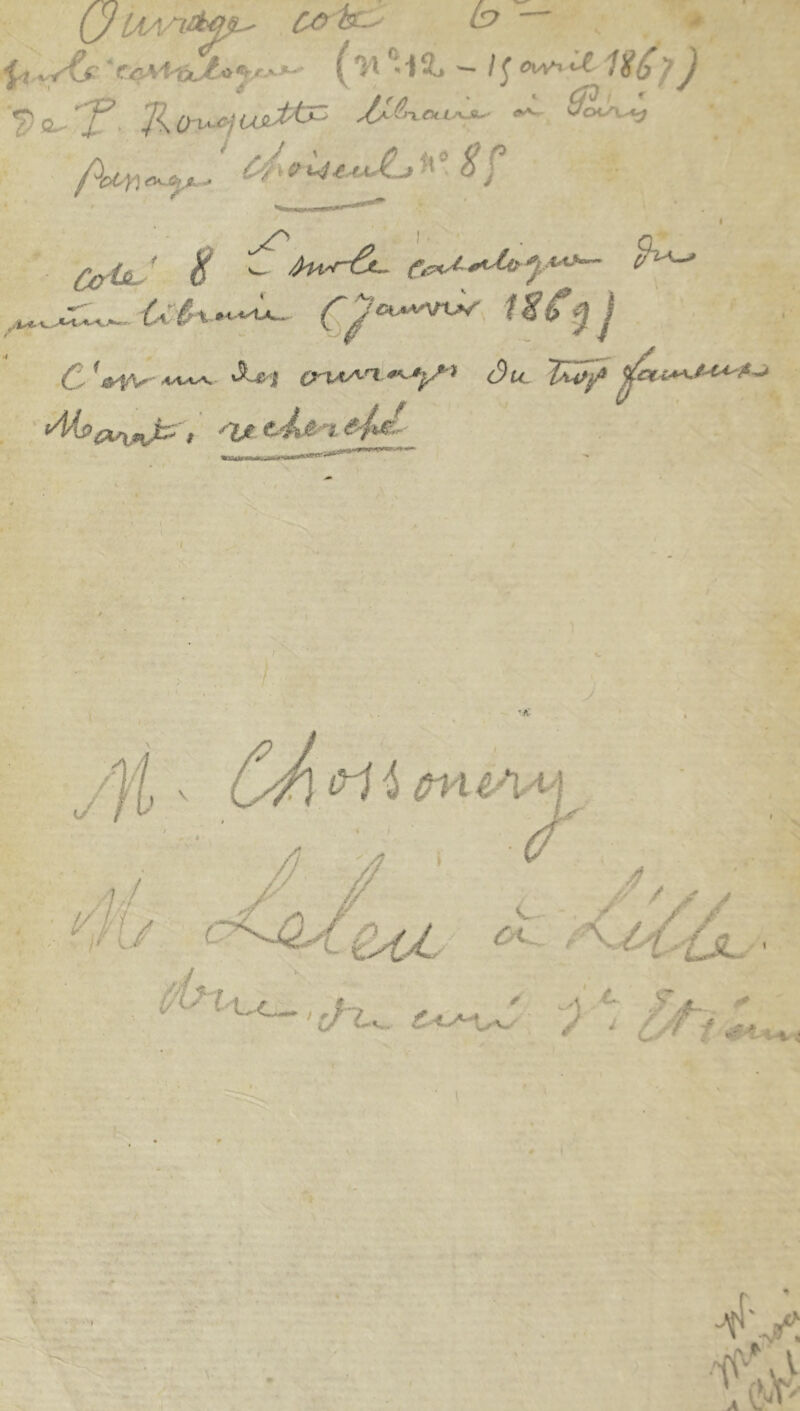 Ouvrage coté 6 —
sur le catalogue (N°. 12 – 15 avril 1867)
De P. Rouquette libraire à Paris
passage Choiseul n°. 85
coté 8 f sur le catalogue du
même libraire (Janvier 1869)
C'est un des ouvrages du trop fameux
Marat, recherché
M. Chossonery
M Leleu à Lille.
du curé St. Etienne
W.